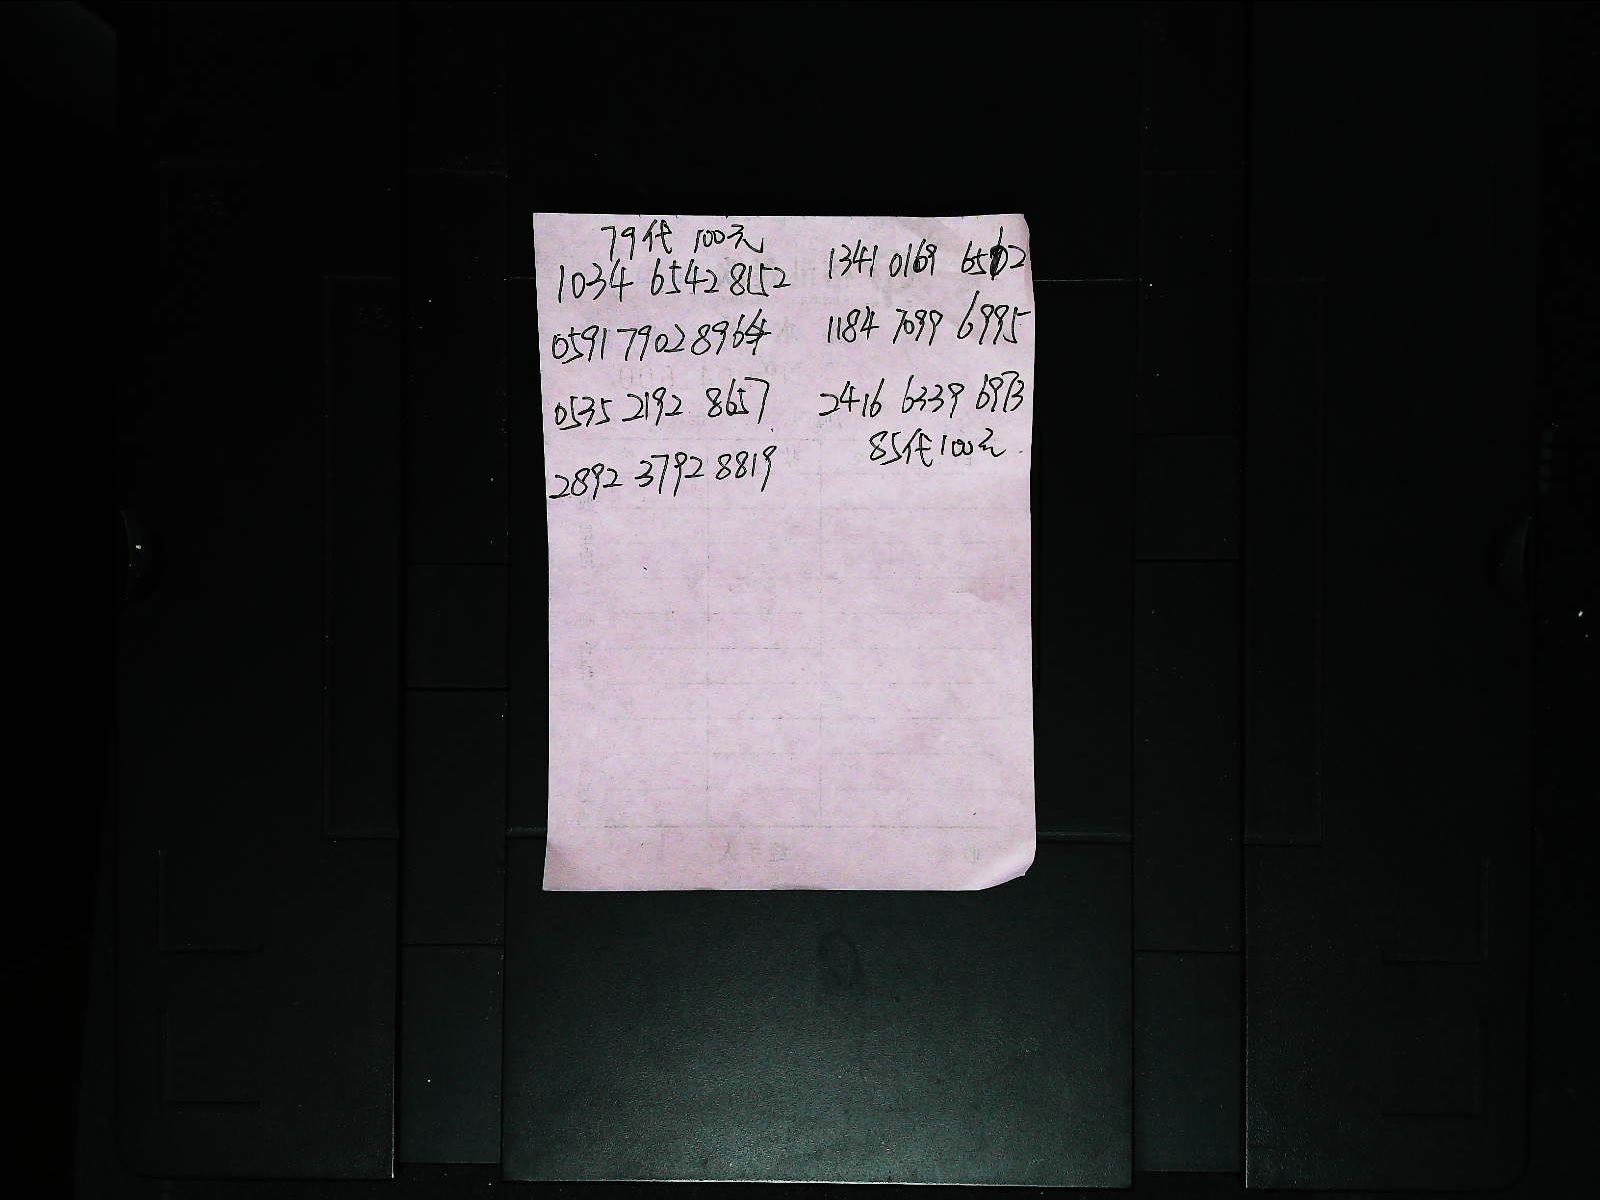 79代 100元
1034 6542 8152
0591 7902 8964
0535 2192 8657
2892 3792 8819
1341 0169 6502
1184 7099 6995
2416 6339 6973
85代100元